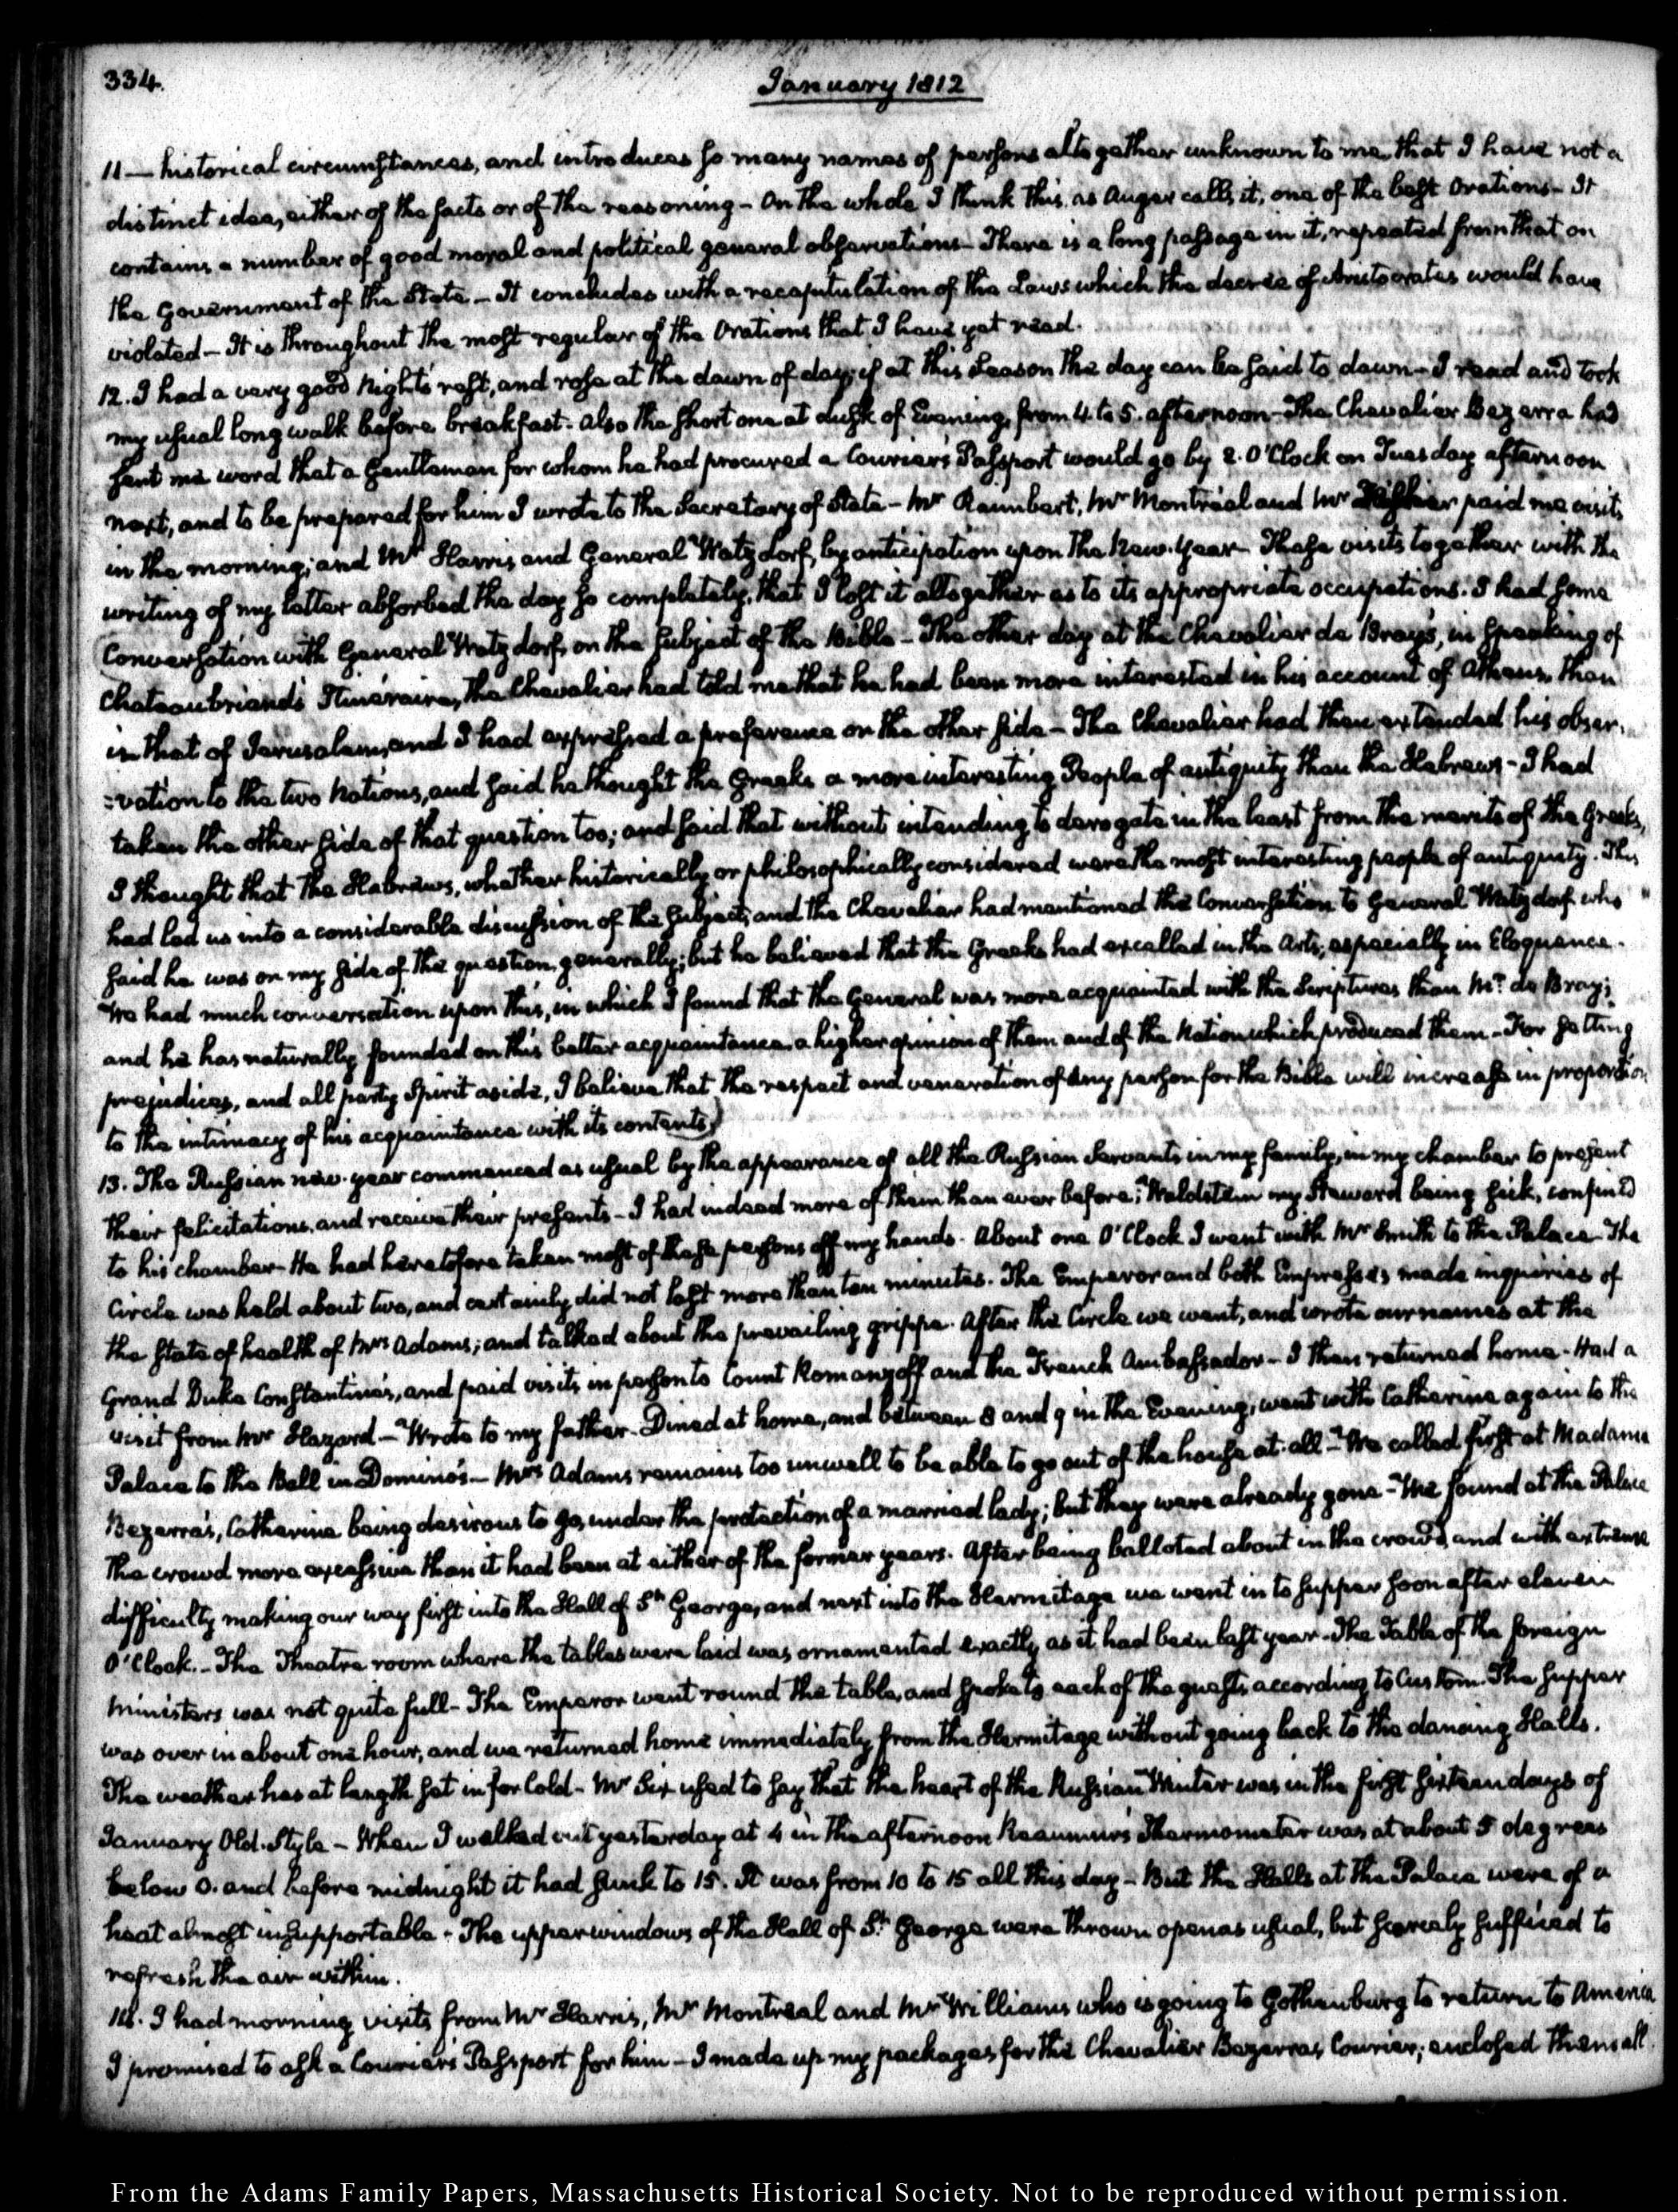 334.
January 1812
11 — historical circumstances, and introduces so many names of persons altogether unknown to me, that I have not a
distinct idea, either of the facts or of the reasoning - On the whole I think this, as Auger calls it, one of the best Orations - It
contains a number of good moral and political general observations - There is a long passage in it, repeated from that on
the Government of the State - It concludes with a recapitulation of the Laws which the decree of Aristocrates would have
violated - It is throughout the most regular of the Orations that I have yet read.
12. I had a very good Night's rest, and rose at the dawn of day; if at this Season the day can be said to dawn - I read and took
my usual long walk before breakfast - also the short one at dusk of Evening, from 4 to 5. afternoon - The Chevalier Bezerra had
sent me word that a Gentleman for whom he had procured a Courier's Passport would go by 2. O'Clock on Tuesday afternoon
next, and to be prepared for him I wrote to the Secretary of State - Mr Raimbert, Mr Montréal and Mr paid me visits
in the morning; and Mr Harris and General Watzdorf, by anticipation upon the New-Year - These visits together with the
writing of my letter absorbed the day so completely, that I lost it altogether as to its appropriate occupations. I had some
Conversation with General Watzdorf, on the subject of the Bible - The other day at the Chevalier de Bray's, in speaking of
Chateaubriand's Itinéraire, the Chevalier had told me that he had been more interested in his account of Athens, than
in that of Jerusalem, and I had expressed a preference on the other side - The Chevalier had then extended his obser-
=vation to the two Nations, and said he thought the Greeks a more interesting People of antiquity than the Hebrews - I had
taken the other side of that question too; and said that without intending to derogate in the least from the merits of the Greeks,
I thought that the Hebrews, whether historically or philosophically considered were the most interesting people of antiquity. This
had led us into a considerable discussion of the subject; and the Chevalier had mentioned the Conversation to General Watzdorf who
said he was on my side of the question, generally; but he believed that the Greeks had excelled in the Arts; especially in Eloquence.
We had much conversation upon this, in which I found that the General was more acquainted with the Scriptures than Mr. de Bray;
and he has naturally founded on this better acquaintance, a higher opinion of them and of the Nation which produced them - For setting
prejudices, and all party Spirit aside, I believe that the respect and veneration of any person for the Bible will increase in proportion
to the intimacy of his acquaintance with its contents)
13. The Russian new-year commenced as usual by the appearance of all the Russian Servants in my family, in my chamber to present
their felicitations, and receive their presents - I had indeed more of them than ever before; Waldstein my Steward being sick, confined
to his chamber - He had heretofore taken most of these persons off my hands. About one O'Clock I went with Mr Smith to the Palace - The
Circle was held about two, and certainly did not last more than ten minutes. The Emperor and both Empresses made inquiries of
the state of health of Mrs Adams; and talked about the prevailing grippe. After the Circle we went, and wrote our names at the
Grand Duke Constantine's, and paid visits in person to Count Romanzoff and the French Ambassador - I then returned home - Had a
visit from Mr Hazard - Wrote to my father - Dined at home, and between 8 and 9 in the Evening, went with Catherine again to the
Palace to the Ball in Domino's - Mrs Adams remains too unwell to be able to go out of the house at all - We called first at Madame
Bezerra's, Catherine being desirous to go, under the protection of a married lady; but they were already gone - We found at the Palace
the crowd more excessive than it had been at either of the former years. After being balloted about in the crowd, and with extreme
difficulty making our way first into the Hall of St. George, and next into the Hermitage we went in to supper soon after eleven
O'Clock. - The Theatre room where the tables were laid was ornamented exactly as it had been last year - The Table of the foreign
Ministers was not quite full - The Emperor went round the table, and spoke to each of the guests, according to Custom. The supper
was over in about one hour, and we returned home immediately from the Hermitage without going back to the dancing Halls.
The weather has at length set in for Cold - Mr Six used to say that the heart of the Russian Winter was in the first fifteen days of
January Old-Style - When I walked out yesterday at 4 in the afternoon Reaumur's Thermometer was at about 5 degrees
below 0. and before midnight it had sunk to 15. It was from 10 to 15 all this day - But the Halls at the Palace were of a
heat almost insupportable - The upper windows of the Hall of St. George were thrown open as usual, but scarcely sufficed to
refresh the air within.
14. I had morning visits from Mr Harris, Mr Montreal and Mr Williams who is going to Gothenburg to return to America
I promised to ask a Courier's Passport for him - I made up my packages for the Chevalier Bezerra's Courier; enclosed them all
From the Adams Family Papers, Massachusetts Historical Society. Not to be reproduced without permission.